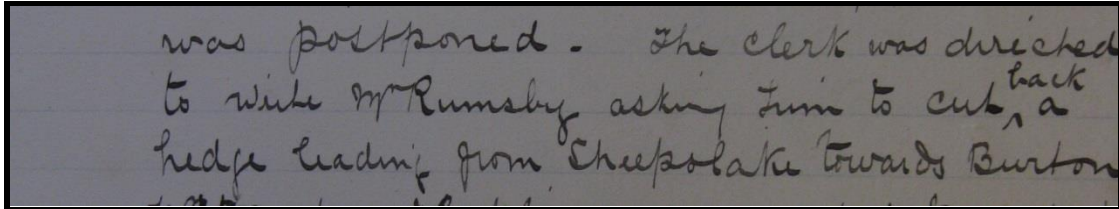 was postponed - The Clerk was directed
to write Mr Rumsby asking him to cut back a
hedge leading from Sheepslake towards Burton